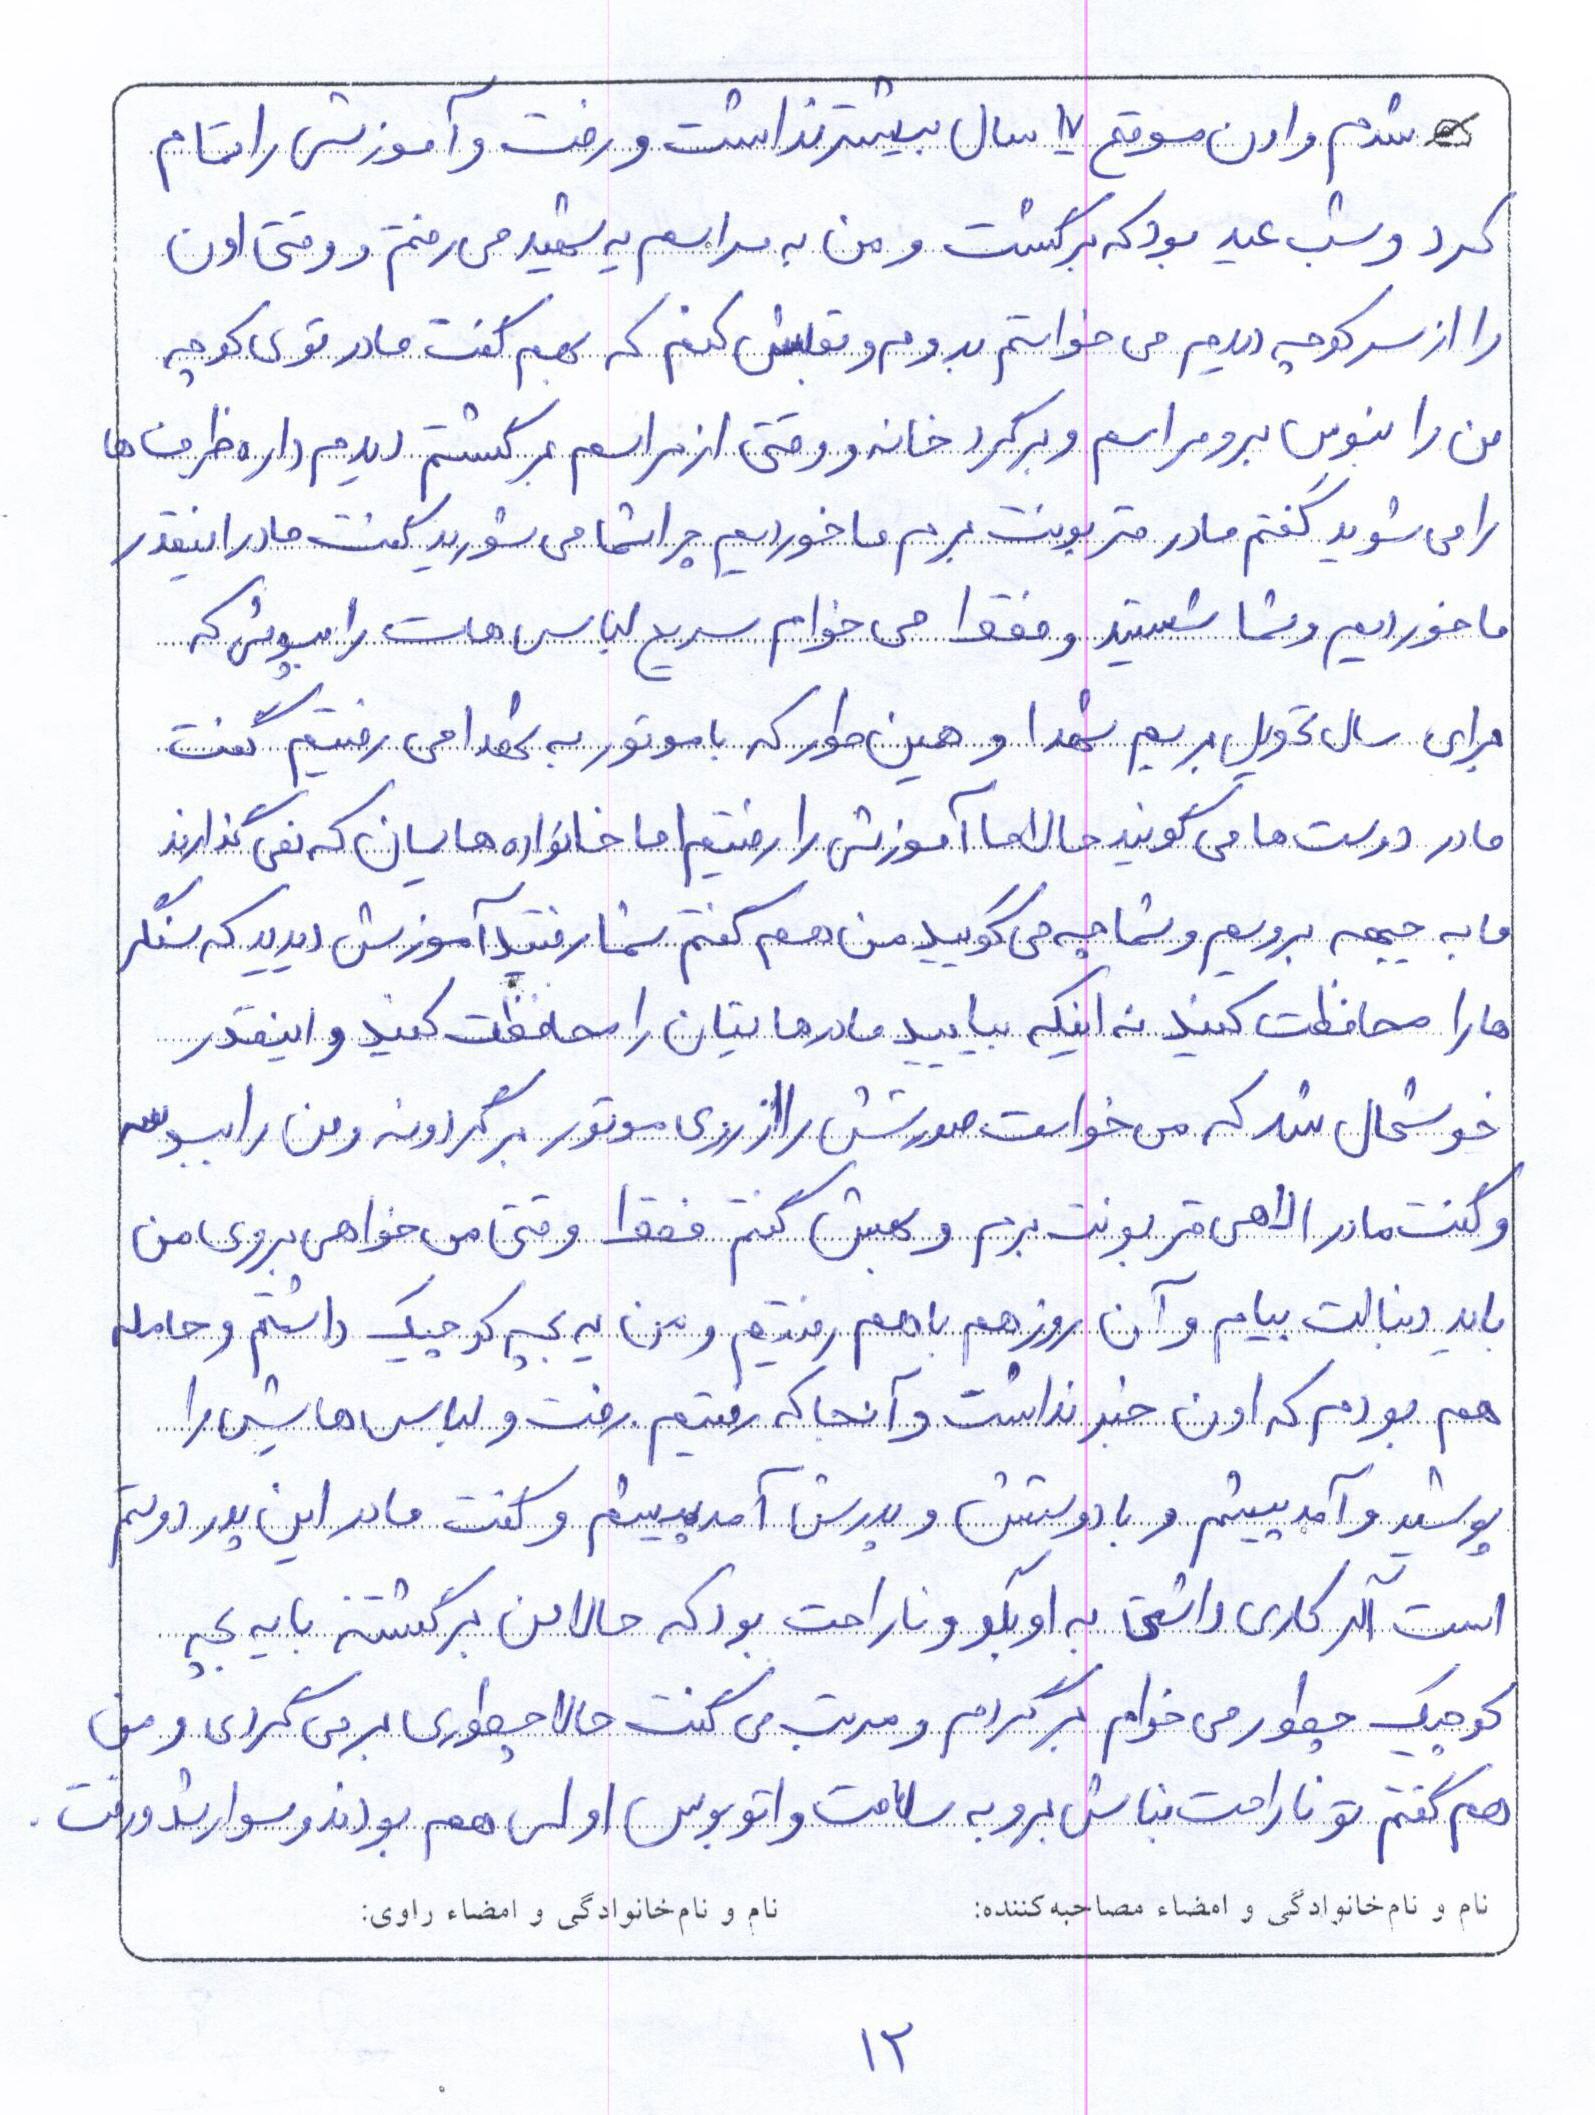 شدم و اون موقع ۱۷ سال بیشتر نداشت و رفت و آموزش را تمام
کرد و شب عید بود که برگشت و من به مراسم یه شهید می رفتم و وقتی اون
را از سر کوچه دیدم می خواستم بدوم و بغلش کنم که بهم گفت مادر توی کوچه
من را نبوس برو مراسم و برگرد خانه و وقتی از مراسم برگشتم دیدم داره ظرف ها
را می شوید گفتم مادر قربونت برم ما خوردیم چرا شما می شورید گفت مادر اینقدر
ما خوردیم و شما شستید و فقط می خوام سریع لباس هات را بپوش که
برای سال تحویل بریم شهدا و همین طور که با موتور به شهدا می رفتیم گفت
مادر دوست ها می گویند حالا ما آموزش را رفتیم اما خانواده هایمان که نمی گذارند
ما به جبهه برویم و شما چه می گویید من هم گفتم شما رفتید آموزش دیدید که سنگر
ها را محافظت کنید نه اینکه بیایید مادرهایتان را محافظت کنید و اینقدر
خوشحال شد که می خواست صورتش را از روی موتور برگردونه و من را ببوسه
و گفت مادر الاهی قربونت برم و بهش گفتم فقط وقتی می خواهی بروی من
باید دنبالت بیام و آن روز هم با هم رفتیم و من یه بچه کوچیک داشتم و حامله
هم بودم که اون خبر نداشت و آنجا که رفتیم رفت و لباس هایش را
پوشید و آمد پیشم و با دوستش و پدرش آمد پیشم و گفت مادر این پدر دوستم
است اگر کاری داشتی به او بگو و ناراحت بود که حالا من برگشتنه با یه بچه
کوچیک چطور می خوام برگردم و مرتب می گفت حالا چطوری بر می گردی و من
هم گفتم تو ناراحت نباش برو به سلامت و اتوبوس اولی هم بودند و سوار شد و رفت.
نام و نام‌خانوادگی و امضاء مصاحبه‌کننده: نام و نام‌خانوادگی و امضاء راوی:
۱۲